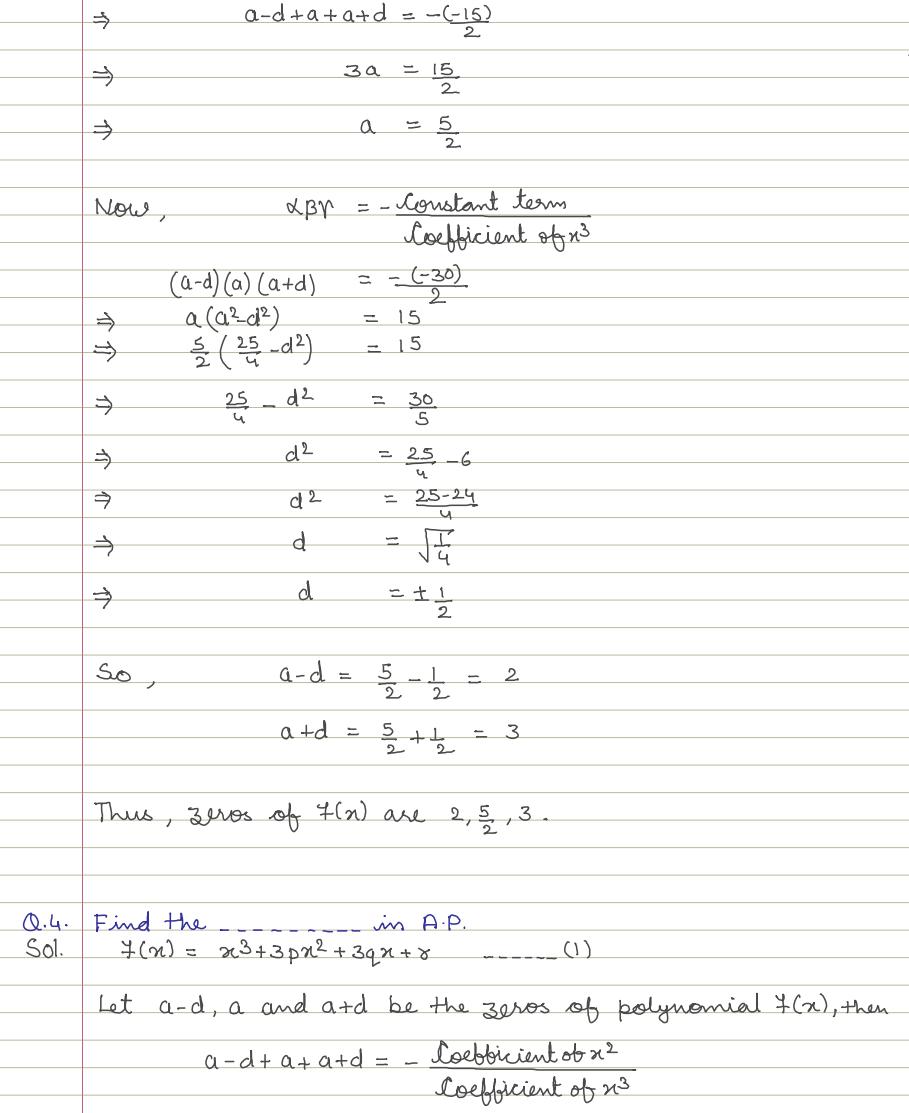 ⇒ a-d+a+a+d = -(-15)/2
⇒ 3a = 15/2
⇒ a = 5/2
Now, αβγ = - Constant term / Coefficient of x³
(a-d)(a)(a+d) = -(-30)/2
⇒ a(a²-d²) = 15
⇒ 5/2 (25/4 - d²) = 15
⇒ 25/4 - d² = 30/5
⇒ d² = 25/4 - 6
⇒ d² = 25-24/4
⇒ d = √1/4
⇒ d = ± 1/2
So, a-d = 5/2 - 1/2 = 2
a+d = 5/2 + 1/2 = 3
Thus, zeros of f(x) are 2, 5/2, 3.
Q.4. Find the __________ in A.P.
Sol. f(x) = x³+3px²+3qx+r ______(1)
Let a-d, a and a+d be the zeros of polynomial f(x), then
a-d+a+a+d = - Coefficient of x² / Coefficient of x³